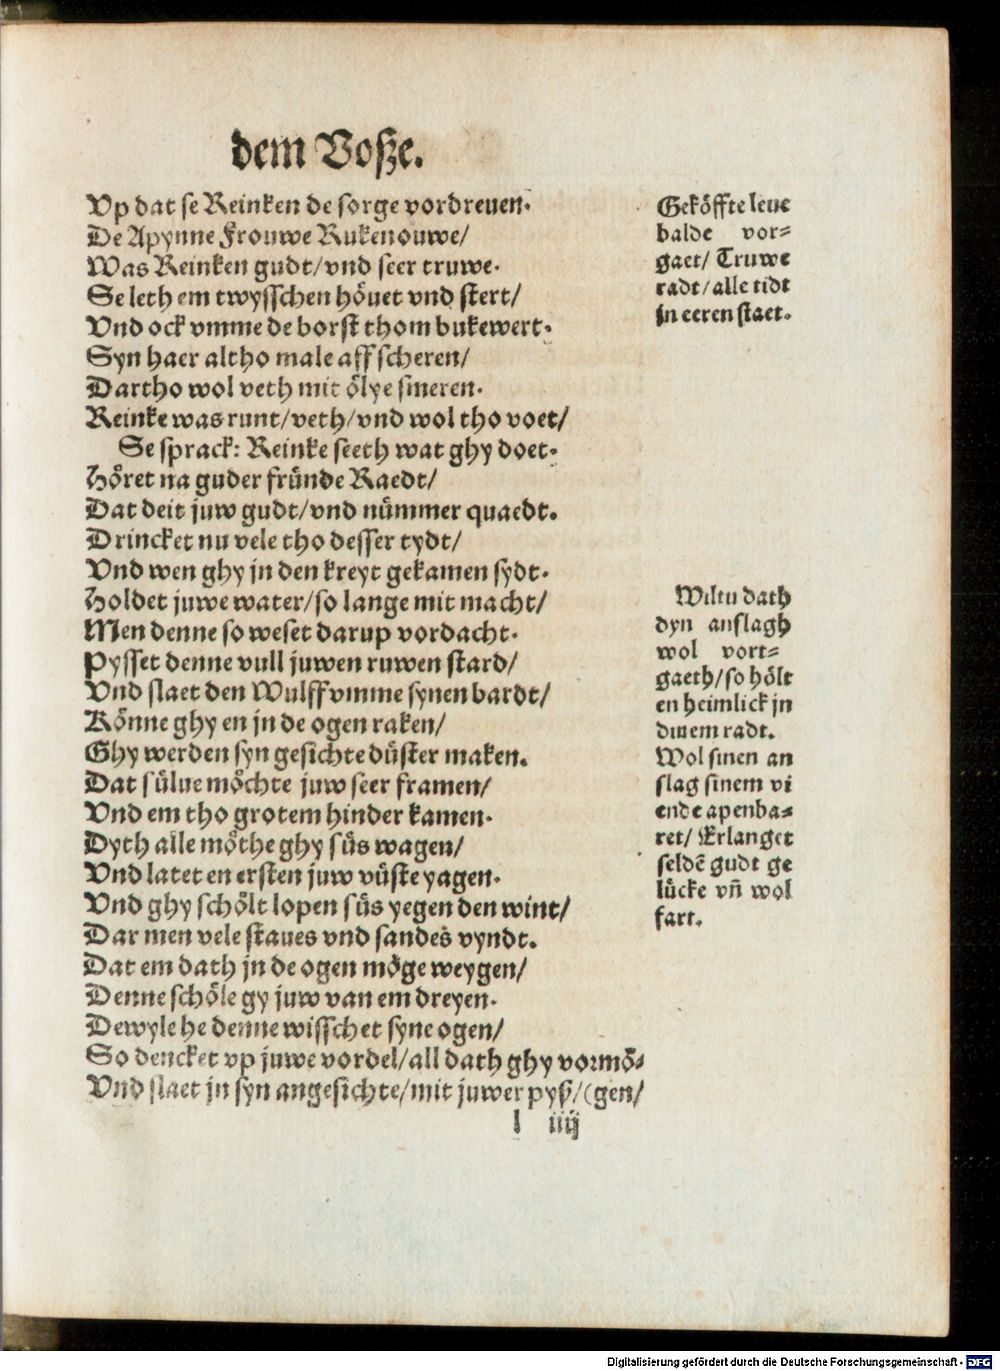 dem Voſze.
Vp dat se Reinken de sorge vordreuen.
De Apynne Frouwe Rukenouwe/
Was Reinken gudt/vnd seer truwe.
Se leth em twysschen höuet vnd stert/
Vnd ock vmme de borst thom bukewert.
Syn haer altho male aff scheren/
Dartho wol veth mit ölye smeren.
Reinke was runt/veth/vnd wol tho voet/
Se sprack: Reinke seeth wat ghy doet.
Höret na guder fründe Raedt/
Dat deit juw gudt/vnd nümmer quaedt.
Drincket nu vele tho desser tydt/
Vnd wen ghy jn den kreyt gekamen sydt.
Holdet juwe water/so lange mit macht/
Men denne so weset darup vordacht.
Pysset denne vull juwen ruwen stard/
Vnd slaet den Wulff vmme synen bardt/
Könne ghy en jn de ogen raken/
Ghy werden syn gesichte düster maken.
Dat sülue möchte juw seer framen/
Vnd em tho grotem hinder kamen.
Dyth alle möthe ghy süs wagen/
Vnd latet en ersten juw vüste yagen.
Vnd ghy schölt lopen süs yegen den wint/
Dar men vele staues vnd sandes vyndt.
Dat em dath jn de ogen möge weygen/
Denne schöle gy juw van em dreyen.
Dewyle he denne wisschet syne ogen/
So dencket vp juwe vordel/all dath ghy vormö-
Vnd slaet jn syn angesichte/mit juwer pyß/(gen/
l iiij
Geköffte leue
balde vor=
gaet/ Truwe
radt/alle tidt
in eeren staet.
Wiltu dath
dyn anslagh
wol vort=
gaeth/so hölt
en heimlick jn
dinem radt.
Wol sinen an
slag sinem vi
ende apenba=
ret/ Erlanget
seldē gudt ge
lücke vñ wol
fart.
Digitalisierung gefördert durch die Deutsche Forschungsgemeinschaft - DFG